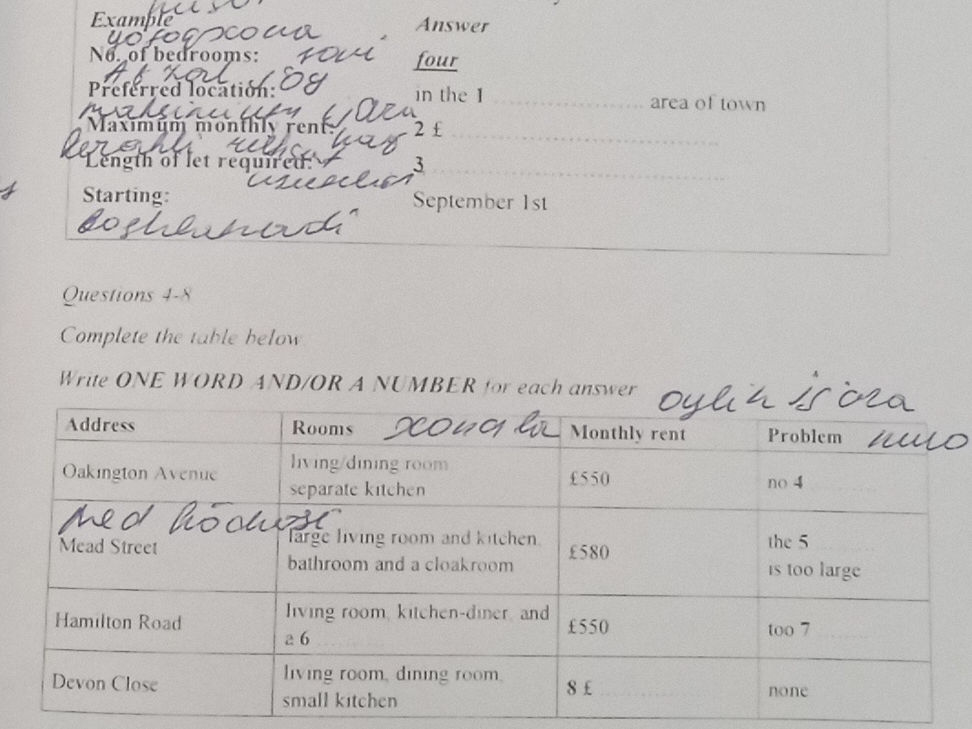 Example Answer
yotoqxona
No. of bedrooms: soni four
Preferred location: in the 1 .......................... area of town
Maximum monthly rent: 2 £ ..............................................
Length of let required: 3 ....................................................
Starting: September 1st
Boshlanardi
Questions 4-8
Complete the table below
Write ONE WORD AND/OR A NUMBER for each answer
oylik ijara
Address Rooms xonalar Monthly rent Problem
Oakington Avenue living/dining room separate kitchen £550 no 4 ............
Med ko'chasi
Mead Street large living room and kitchen, bathroom and a cloakroom £580 the 5 ............ is too large
Hamilton Road living room, kitchen-diner, and a 6 ............ £550 too 7 ............
Devon Close living room, dining room, small kitchen 8 £ ..................... none